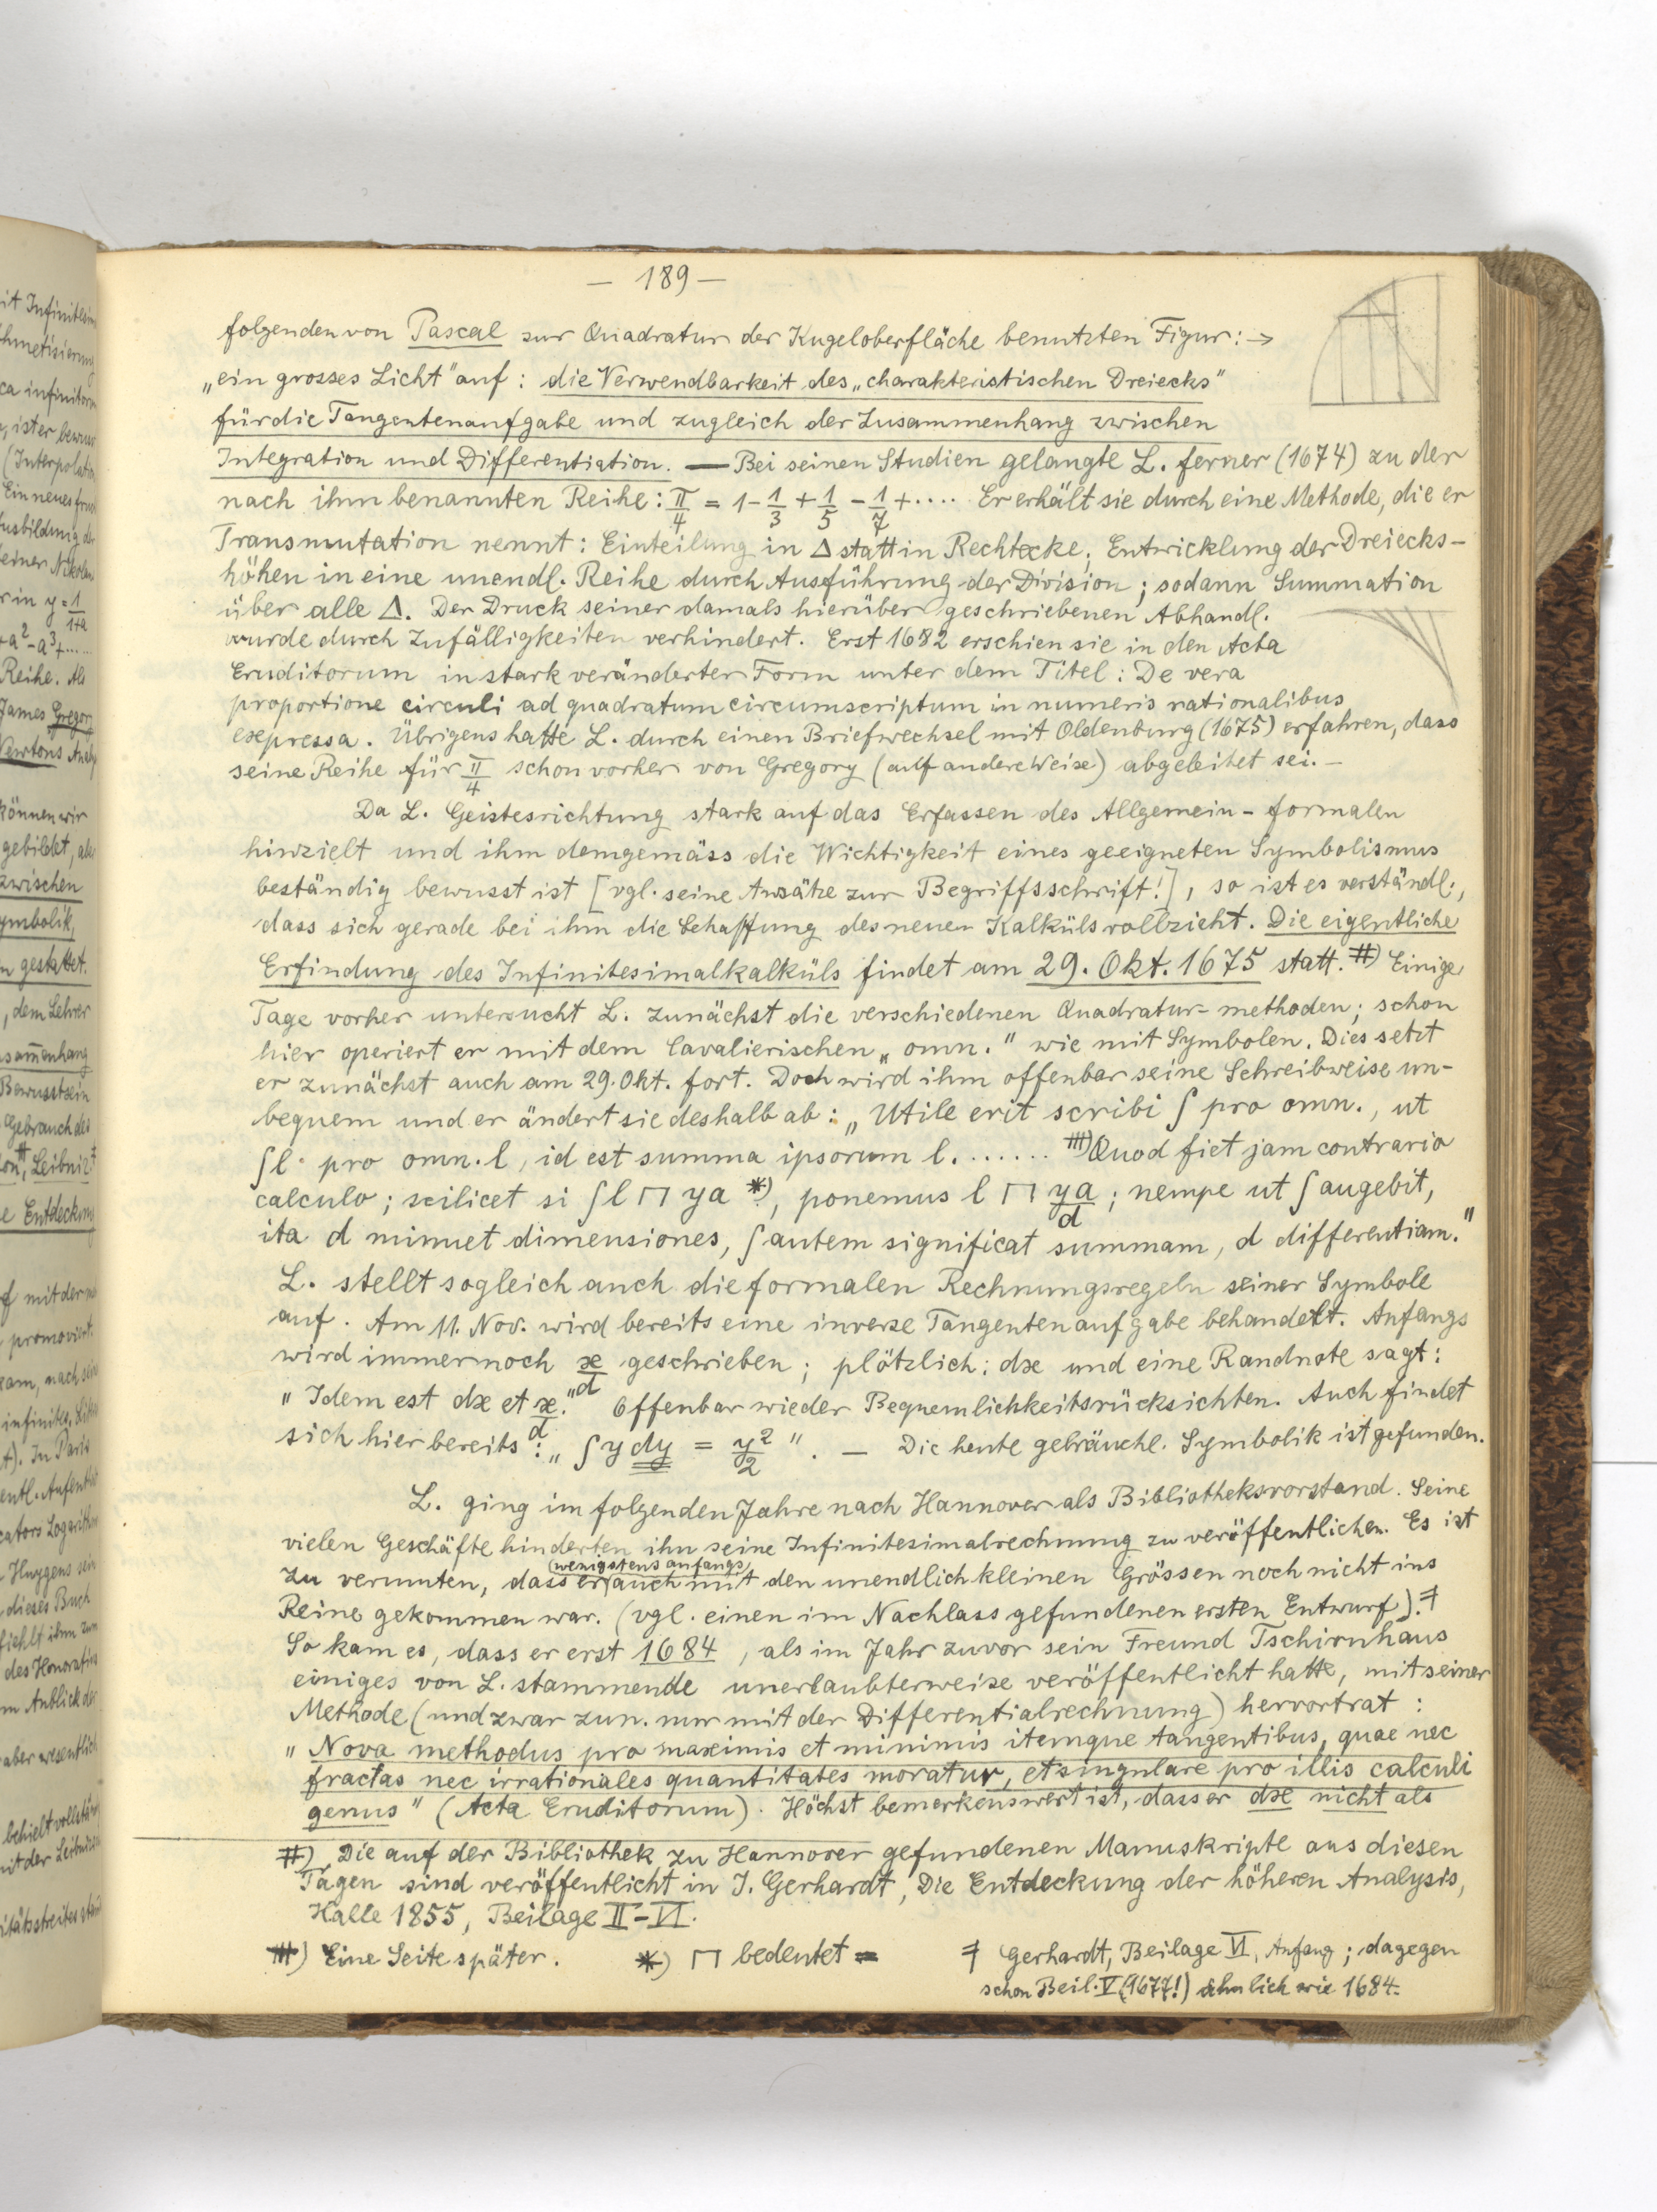 – 189 –
folgenden von Pascal zur Quadratur der Kugeloberfläche benutzten Figur: →
„ein grosses Licht" auf: die Verwendbarkeit des „charakteristischen Dreiecks"
für die Tangentenaufgabe und zugleich der Zusammenhang zwischen
Integration und Differentiation. — Bei seinen Studien gelangte L. ferner (1674) zu der
nach ihm benannten Reihe: π/4 = 1 - 1/3 + 1/5 - 1/7 + .... Er erhält sie durch eine Methode, die er
Transmutation nennt: Einteilung in Δ statt in Rechtecke, Entwicklung der Dreiecks-
höhen in eine unendl. Reihe durch Ausführung der Division; sodann Summation
über alle Δ. Der Druck seiner damals hierüber geschriebenen Abhandl.
wurde durch Zufälligkeiten verhindert. Erst 1682 erschien sie in den Acta
Eruditorum in stark veränderter Form unter dem Titel: De vera
proportione circuli ad quadratum circumscriptum in numeris rationalibus
expressa. Übrigens hatte L. durch einen Briefwechsel mit Oldenburg (1675) erfahren, dass
seine Reihe für π/4 schon vorher von Gregory (auf andere Weise) abgeleitet sei. –
Da L. Geistesrichtung stark auf das Erfassen des Allgemein-formalen
hinzielt und ihm demgemäss die Wichtigkeit eines geeigneten Symbolismus
beständig bewusst ist [vgl. seine Ansätze zur Begriffsschrift!], so ist es verständl.,
dass sich gerade bei ihm die Schaffung des neuen Kalküls vollzieht. Die eigentliche
Erfindung des Infinitesimalkalküls findet am 29. Okt. 1675 statt. #) Einige
Tage vorher untersucht L. zunächst die verschiedenen Quadratur-methoden; schon
hier operiert er mit dem Cavalierischen „omn." wie mit Symbolen. Dies setzt
er zunächst auch am 29. Okt. fort. Doch wird ihm offenbar seine Schreibweise un-
bequem und er ändert sie deshalb ab: „Utile erit scribi ∫ pro omn., ut
∫l pro omn. l, id est summa ipsorum l. ...... #) Quod fiet jam contrario
calculo; scilicet si ∫l ⊓ ya *), ponemus l ⊓ ya/d; nempe ut ∫ augebit,
ita d minuet dimensiones, ∫ autem significat summam, d differentiam."
L. stellt sogleich auch die formalen Rechnungsregeln seiner Symbole
auf. Am 11. Nov. wird bereits eine inverse Tangentenaufgabe behandelt. Anfangs
wird immer noch x/d geschrieben; plötzlich: dx und eine Randnote sagt:
„Idem est dx et x/d." Offenbar wieder Bequemlichkeitsrücksichten. Auch findet
sich hier bereits: „∫ y dy = y²/2". – Die heute gebräuchl. Symbolik ist gefunden.
L. ging im folgenden Jahre nach Hannover als Bibliotheksvorstand. Seine
vielen Geschäfte hinderten ihn seine Infinitesimalrechnung zu veröffentlichen. Es ist
zu vermuten, dass er (wenigstens anfangs) auch mit den unendlich kleinen Grössen noch nicht ins
Reine gekommen war. (vgl. einen im Nachlass gefundenen ersten Entwurf). ‡
So kam es, dass er erst 1684, als im Jahr zuvor sein Freund Tschirnhaus
einiges von L. stammende unerlaubterweise veröffentlicht hatte, mit seiner
Methode (und zwar zun. nur mit der Differentialrechnung) hervortrat:
„Nova methodus pro maximis et minimis itemque tangentibus, quae nec
fractas nec irrationales quantitates moratur, et singulare pro illis calculi
genus" (Acta Eruditorum). Höchst bemerkenswert ist, dass er dx nicht als
#) Die auf der Bibliothek zu Hannover gefundenen Manuskripte aus diesen
Tagen sind veröffentlicht in J. Gerhardt, Die Entdeckung der höheren Analysis,
Halle 1855, Beilage II–VI.
#) Eine Seite später. *) ⊓ bedeutet = ‡ Gerhardt, Beilage VI, Anfang; dagegen
schon Beil. V (1677!) ähnlich wie 1684.